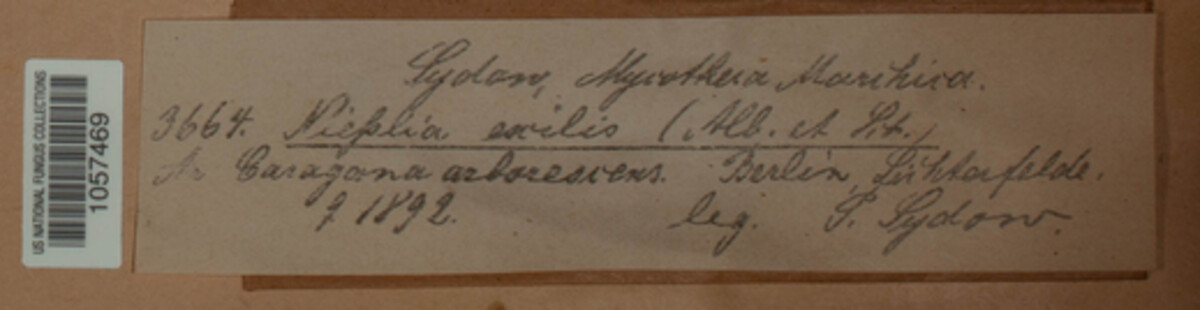 US NATIONAL FUNGUS COLLECTIONS
1057469
Sydow, Mycotheca Marchica.
3664. Nießlia exilis (Alb. et Sch.)
Caragana arborescens. Berlin, Lichterfelde.
9 1892. leg. P. Sydow.